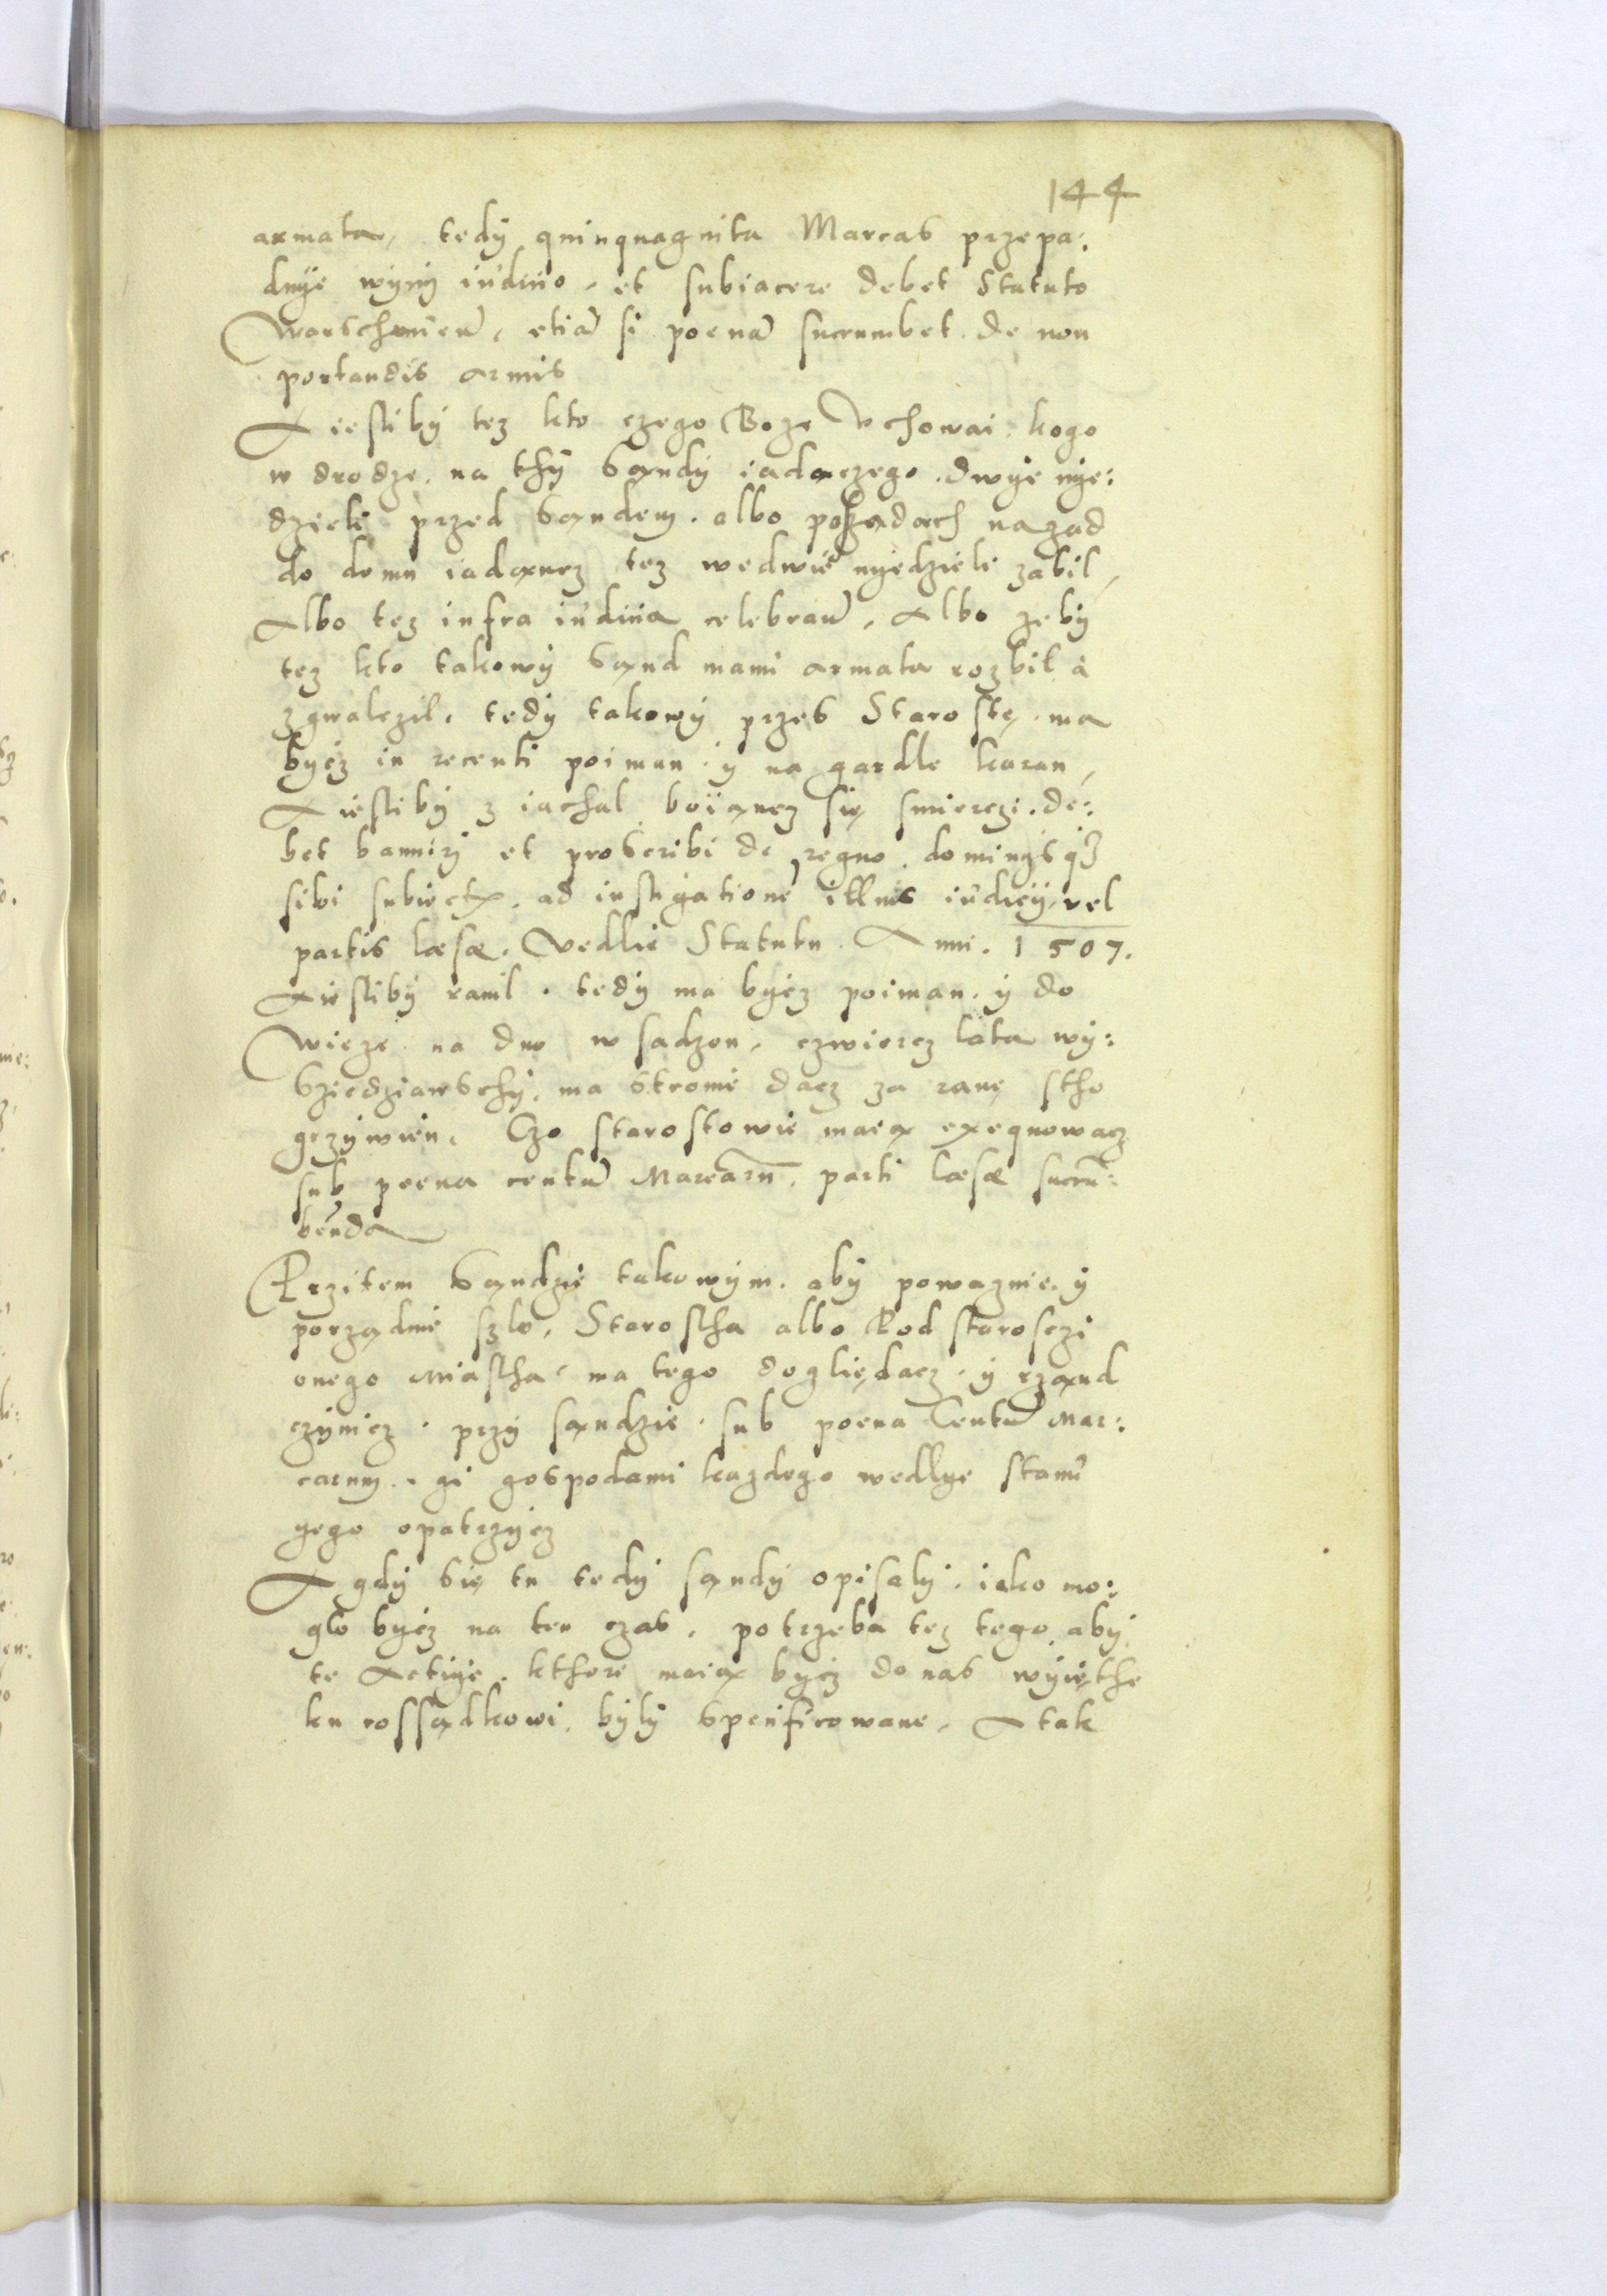 144
armata, tedÿ quinquagnita Marcas przepa:
dnÿe wÿnÿ iuditio, et subiacere debet Statuto
Warschauien̄, etiā si poenā sucrumbet. de non
portandis armis
A iesliby tez kto czego Boze Vchowai kogo
w drodze na thÿ Sąndÿ iadączego. dwÿe nÿe:
dzieli przed Sąndem. albo po Sądach nazad
do domu iadąncz tez wedwie nÿedzieli zabil,
Albo tez infra iuditia celebran̄, Albo zeby
tez kto takowÿ Sąnd manu armata rozbil à
zgwalczil, tedÿ takowÿ przes Starostę. ma
bÿcz in recenti poiman. ÿ na gardle karan,
A iesliby z iachal boiąncz się smierczi. de:
bet bannirj et proscribi de regno. dominÿsqȝ
sibi subiectis. ad instigationē illius iudicÿ, vel
partis læsæ. Vedlie Statutu. Anni. 1507.
A iesliby ranil. tedÿ ma bÿcz poiman. ÿ do
Wieze na dno w sadzon, czwiercz lata wÿ:
Sziedziawschÿ. ma stronie dacz za ranę stho
grzÿwien. Czo starostowie maią exequowacz
sub poena centū Marcarū. parti læsæ sucrū:
benda
Przitem Sąndzie takowÿm. abÿ powaznie. ÿ
porządnie szlo, Staroscha albo Pod starosczi
onego Miastha, ma tego doględacz. ÿ rząnd
czÿnicz. przÿ sąndzie. sub poena Centū Mar:
carum. gi gospodami kazdego wedlÿe stanu
ÿego opatrzÿcz
A gdÿ się tu tedÿ sąndÿ opisalÿ. iako mo:
glo bÿcz na ten czas. potrzeba tez tego abÿ
te Actiÿe. kthore maią bÿcz do nas wÿięthe
ku rossądkowi. bÿlÿ Specifirowane, A tak